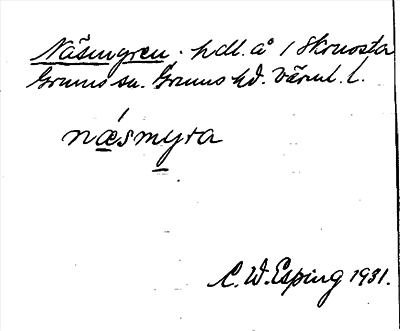 Näsmyren. hdl. å 1 Skruosta
Grums sn. Grums hd. Värml. l.
næ´smyra
C. W. Esping 1931.